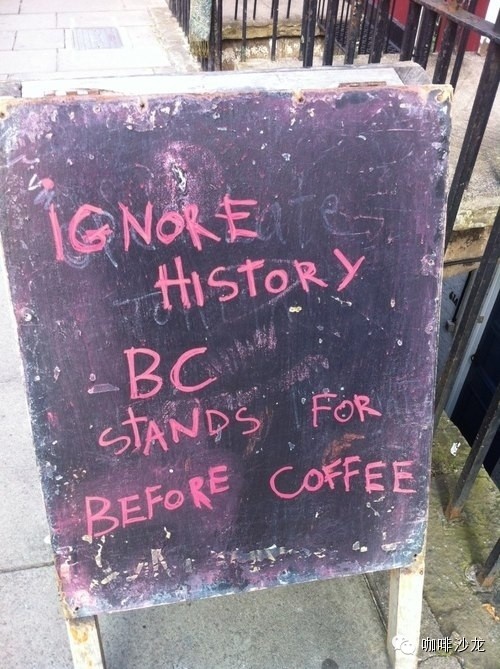 IGNORE
HISTORY
BC
STANDS FOR
BEFORE COFFEE
咖啡沙龙